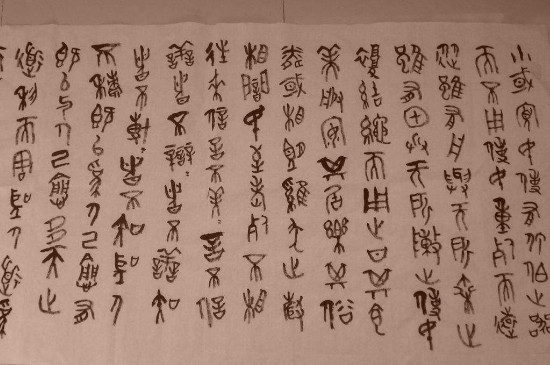 小或寡民使有什伯之器
而不用使民重死而遠
雖有舟輿无所乘之
雖有甲兵无所陳之使民
復結繩而用之甘其食
美其服安其居樂其俗
或相望雞犬之聲
相聞民至老死不相
往來信言不美言不信
善者不辯者不善知
者不博者不知聖人
不積既以為人己愈有
既以与人己愈多天之
道利而聖人道為